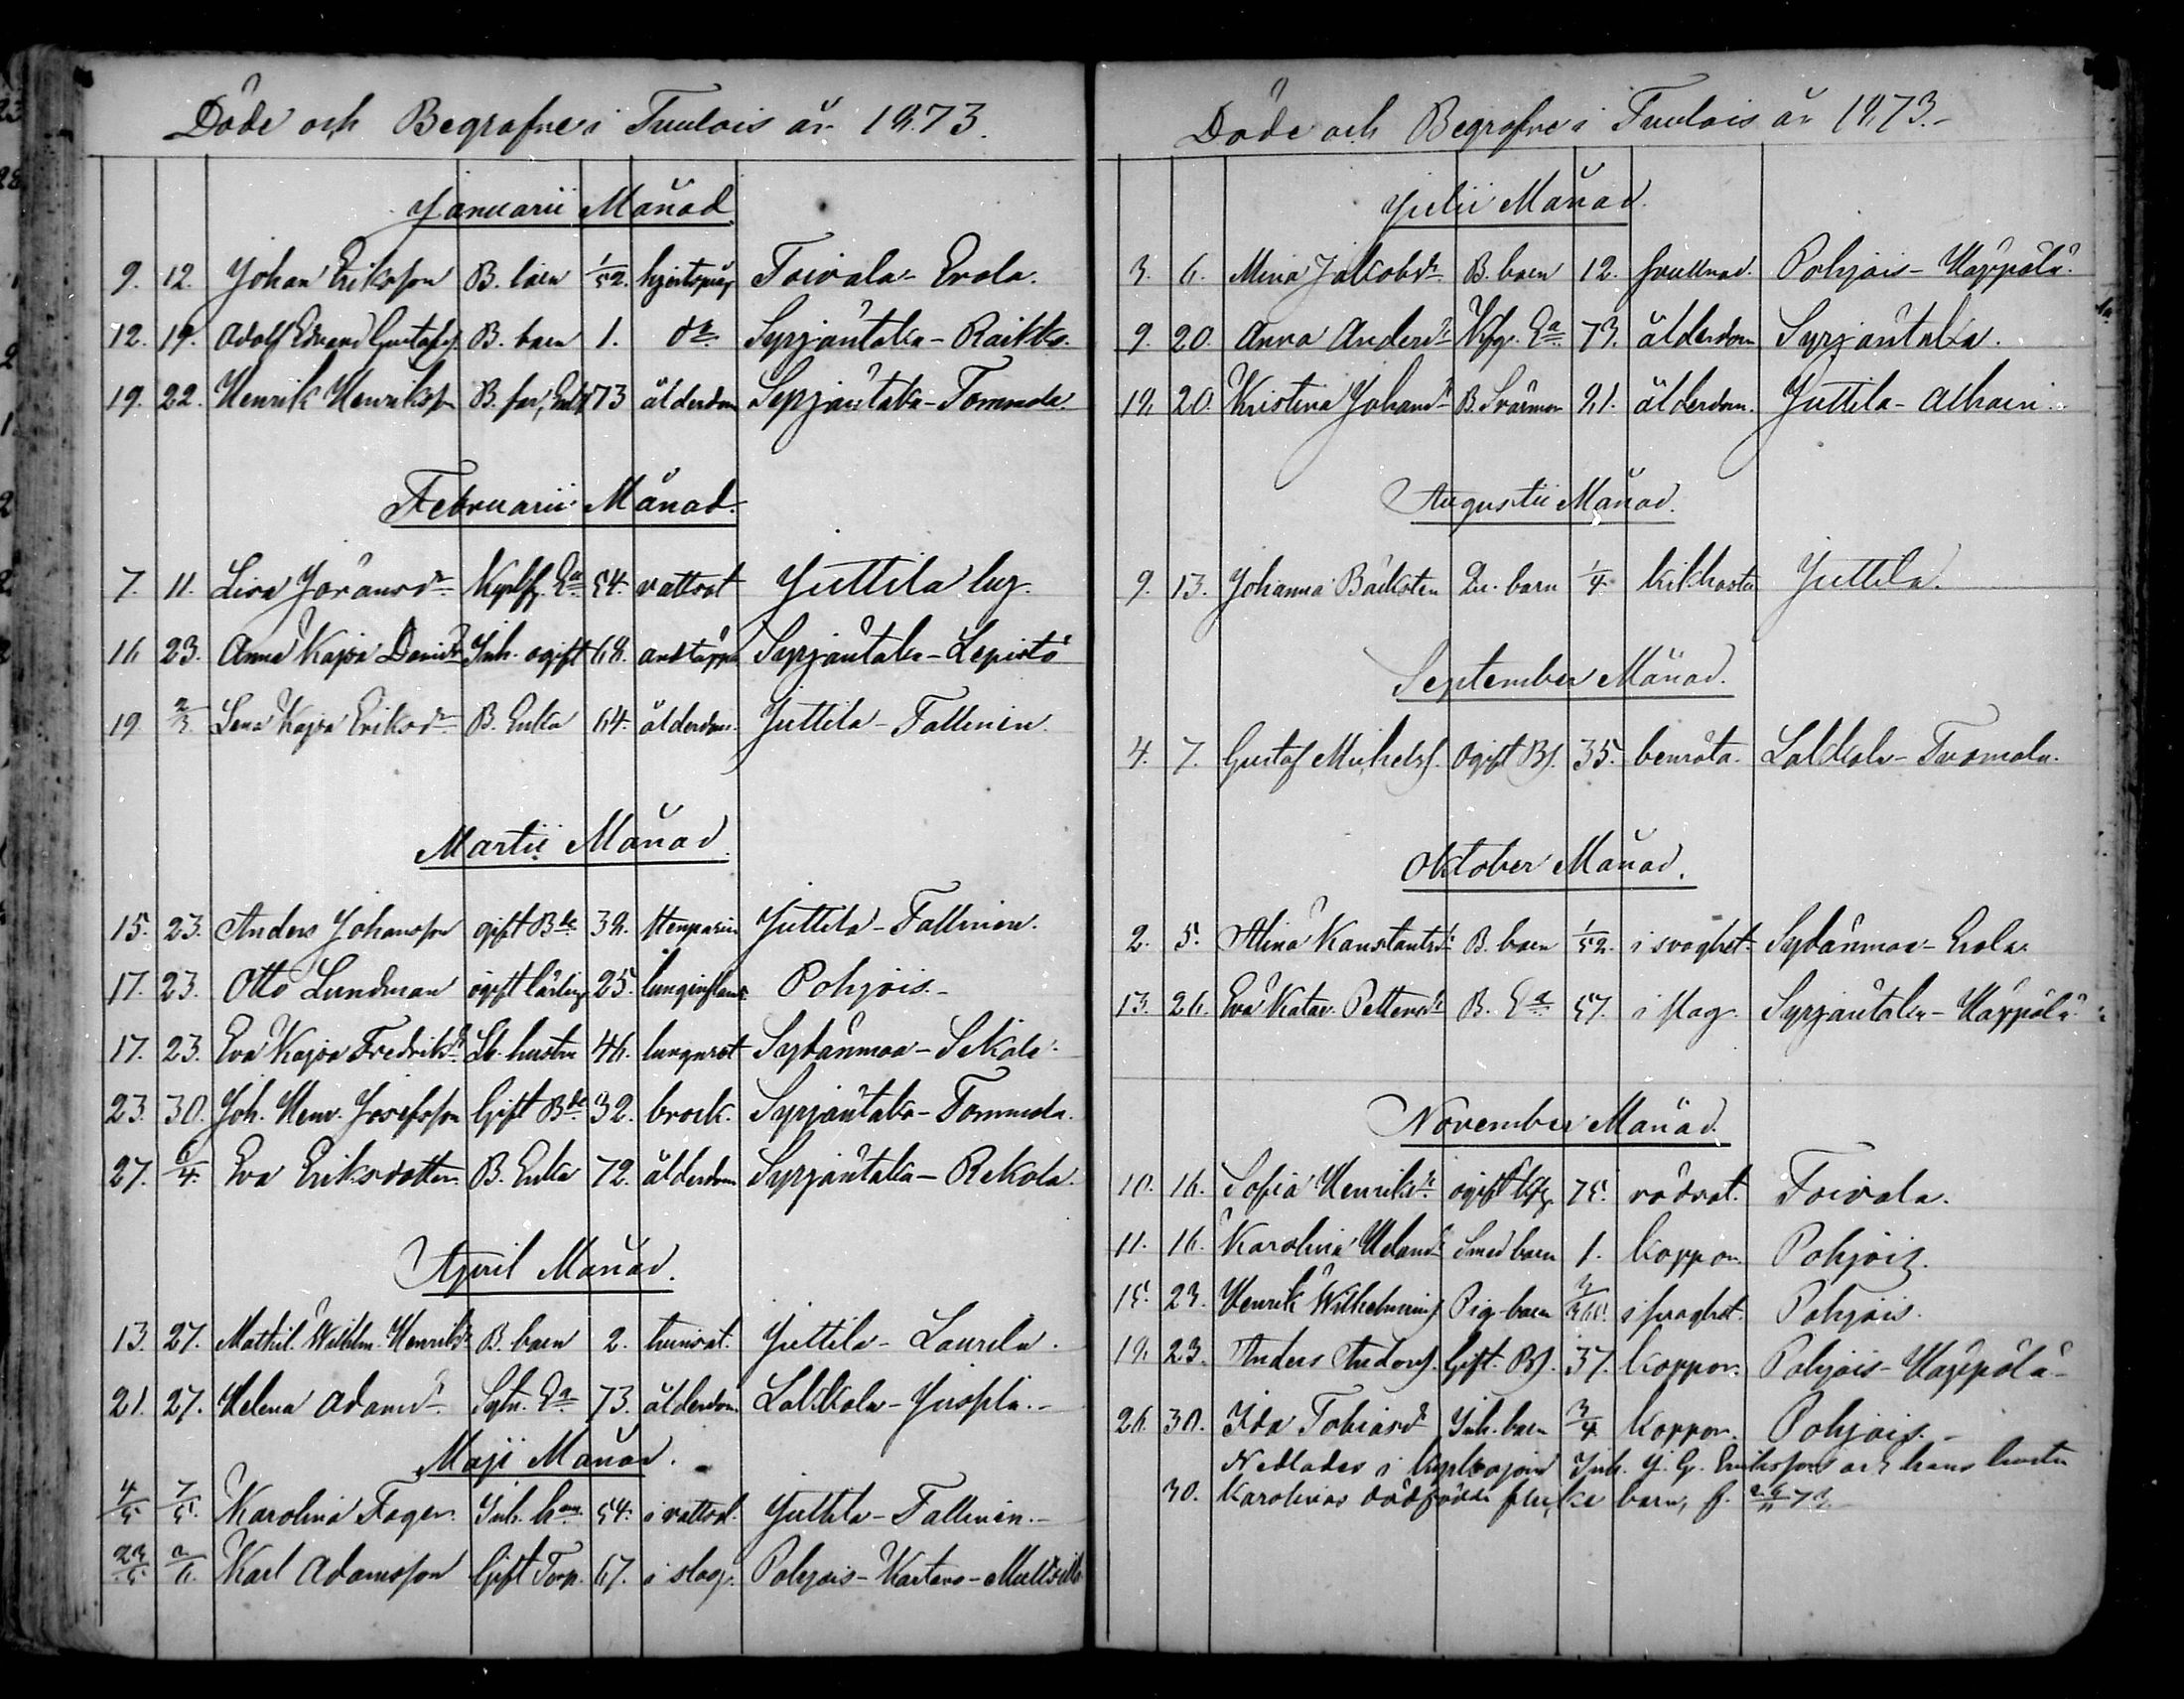 Döde och Begrafne i Tuulois år 1873.
Januarii Månad
9. 12. Johan Eriksson B. barn 1/52. Toivola - Erola.
12. 19. Adolf Edvard Gustafss. B. barn 1. do Syrjäntaka - Raikko.
19. 22. Henrik Henrikss. B. far, Enkl. 73 ålderdom Syrjäntaka - Tommola.
Februarii Månad.
7. 11. Lisa Göransdr 54. vattsot Juttila by.
16 23. Anna Kajsa Davidsdr Inh. ogift 68. andtäppa Syrjäntaka - Lepistö
19. 2/3 Lena Kajsa Eriksdr B. Enka 64. ålderdom. Juttila - Tallinen.
Martii Månad.
15. 23. Anders Johansson gift Bde 38. Juttila - Tallinen.
17. 23. Otto Lundman ogift lärling 25. lunginflam. Pohjois. -
17. 23. Eva Kajsa Fredriksdr hustru 46. lungsot Sydänmaa - Sekola.
23. 30. Joh. Henr. Josefsson Gift Bde 32. brock. Syrjäntaka - Tommola.
27. 6/4. Eva Eriksdotter B. Enka 72. ålderdom Syrjäntaka - Rekola.
April Månad.
13. 27. Mathil. Wilhelm. Henriksdr B. barn 2. tvinsot. Juttila - Laurila.
21. 27. Helena Adamsdr Sytn. Ea 73. ålderdom. Lalkkola - Jussila. -
Maji Månad.
4/5 7/5. Karolina Fager. Inh. 54. i vattsot. Juttila - Tallinen. -
23/5. 2/6. Karl Adamsson Gift Torp. 67. i slag. Pohjois - Kartano -
Döde och Begrafne i Tuulois år 1873. -
Julii Månad.
3. 6. Mina Jakobsdr B. barn 12. Pohjois - Häppälä.
9. 20. Anna Andersdr Ea 73. ålderdom Syrjäntaka.
18. 20. Kristina Johansdr B. Svärmor 81. ålderdom. Juttila - Alhain.
Augustii Månad.
9. 13. Johanna Bäcksten barn 1/4. kikhosta Juttila.
September Månad.
4. 7. Gustaf Michelss. Ogift Bs. 35. benröta. Lalkkola - Tuomola.
Oktober Månad.
2. 5. Alina Konstantsdr B. barn 1/52. i svaghet. Sydänmaa - Erola.
13. 26. Eva Katar. Pettersdr B. Ea 57. i slag. Syrjäntaka - Häppälä.
November Månad.
10. 16. Sofia Henriksdr ogift 75. rödsot. Toivola.
11. 16. Karolina Smed barn 1. koppor. Pohjois.
15. 23. Henrik Wilhelminass. Pig. barn 2/365. i svaghet. Pohjois.
18. 23. Anders Anderss. Gift. Bs. 37. koppor. Pohjois - Häppälä -
26. 30. Ida Tobiasdr Inh. barn 3/4 koppor. Pohjois. -
Nedlades i Inh. J. G. Erikssons och hans hustru
30. Karolinas dödfödda barn, f.